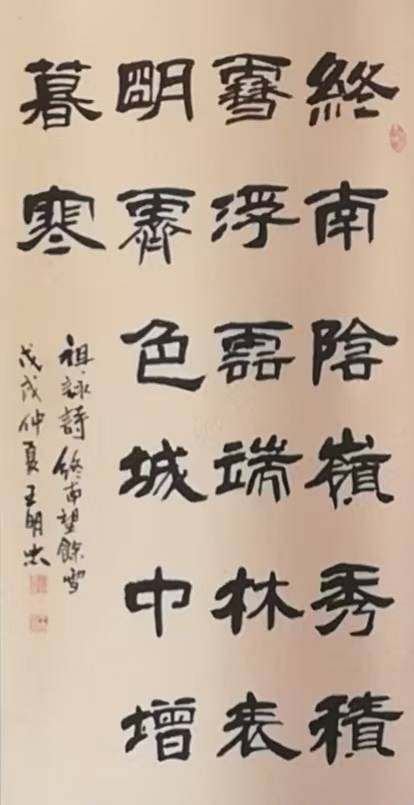 終南陰嶺秀積
雪浮雲端林表
明霽色城中增
暮寒
祖詠詩終南望餘雪
戊戌仲夏王明忠